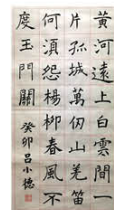 黄河遠上白雲間一
片孤城萬仞山羌笛
何湏怨楊柳春風不
度玉門關
癸卯吕小德